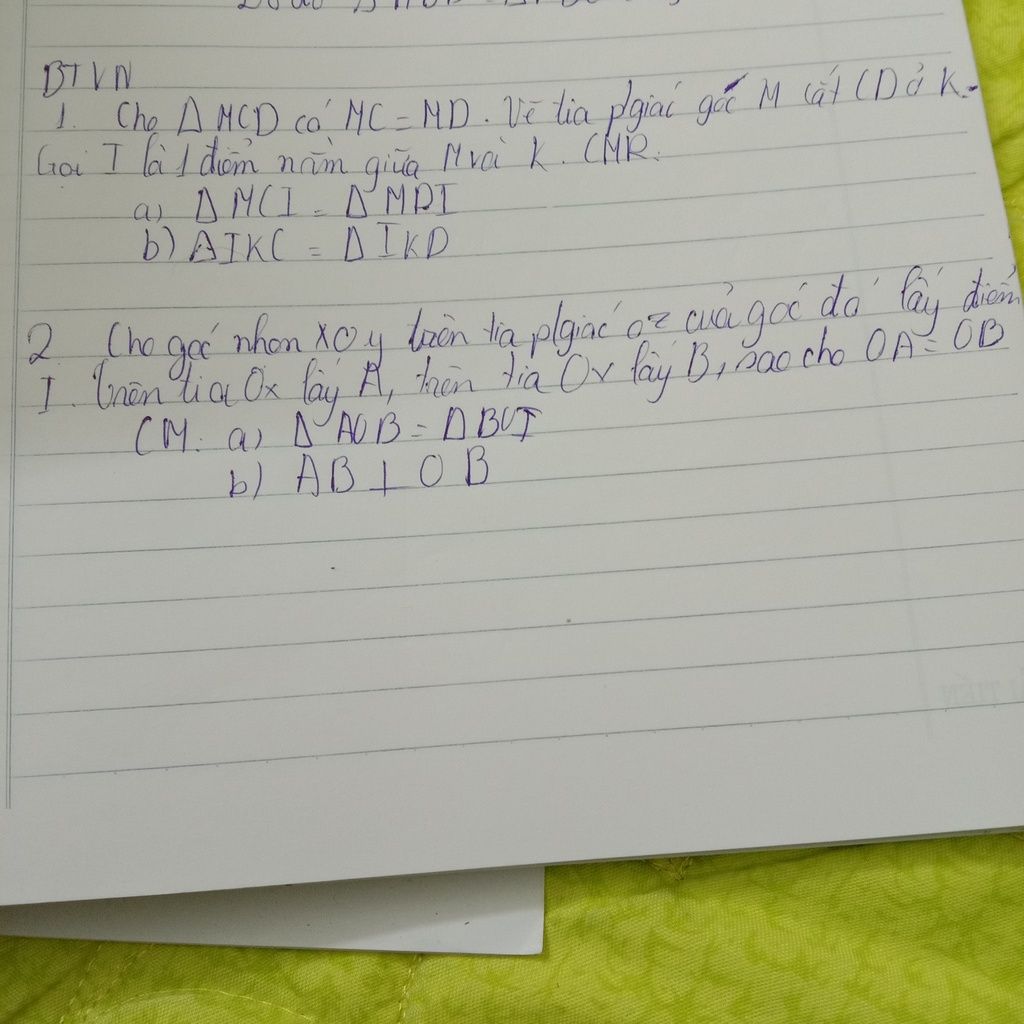 BTVN
1. Cho Δ MCD có MC = MD. Vẽ tia p/giác góc M cắt CD ở K.
Gọi I là 1 điểm nằm giữa M và K. CMR:
a) Δ MCI = Δ MDI
b) Δ IKC = Δ IKD
2 Cho góc nhọn xOy trên tia p/giác oz của góc đó lấy điểm
I. trên tia Ox lấy A, trên tia Oy lấy B, sao cho OA = OB
CM. a) Δ AOB = Δ BOI
b) AB ⊥ OB